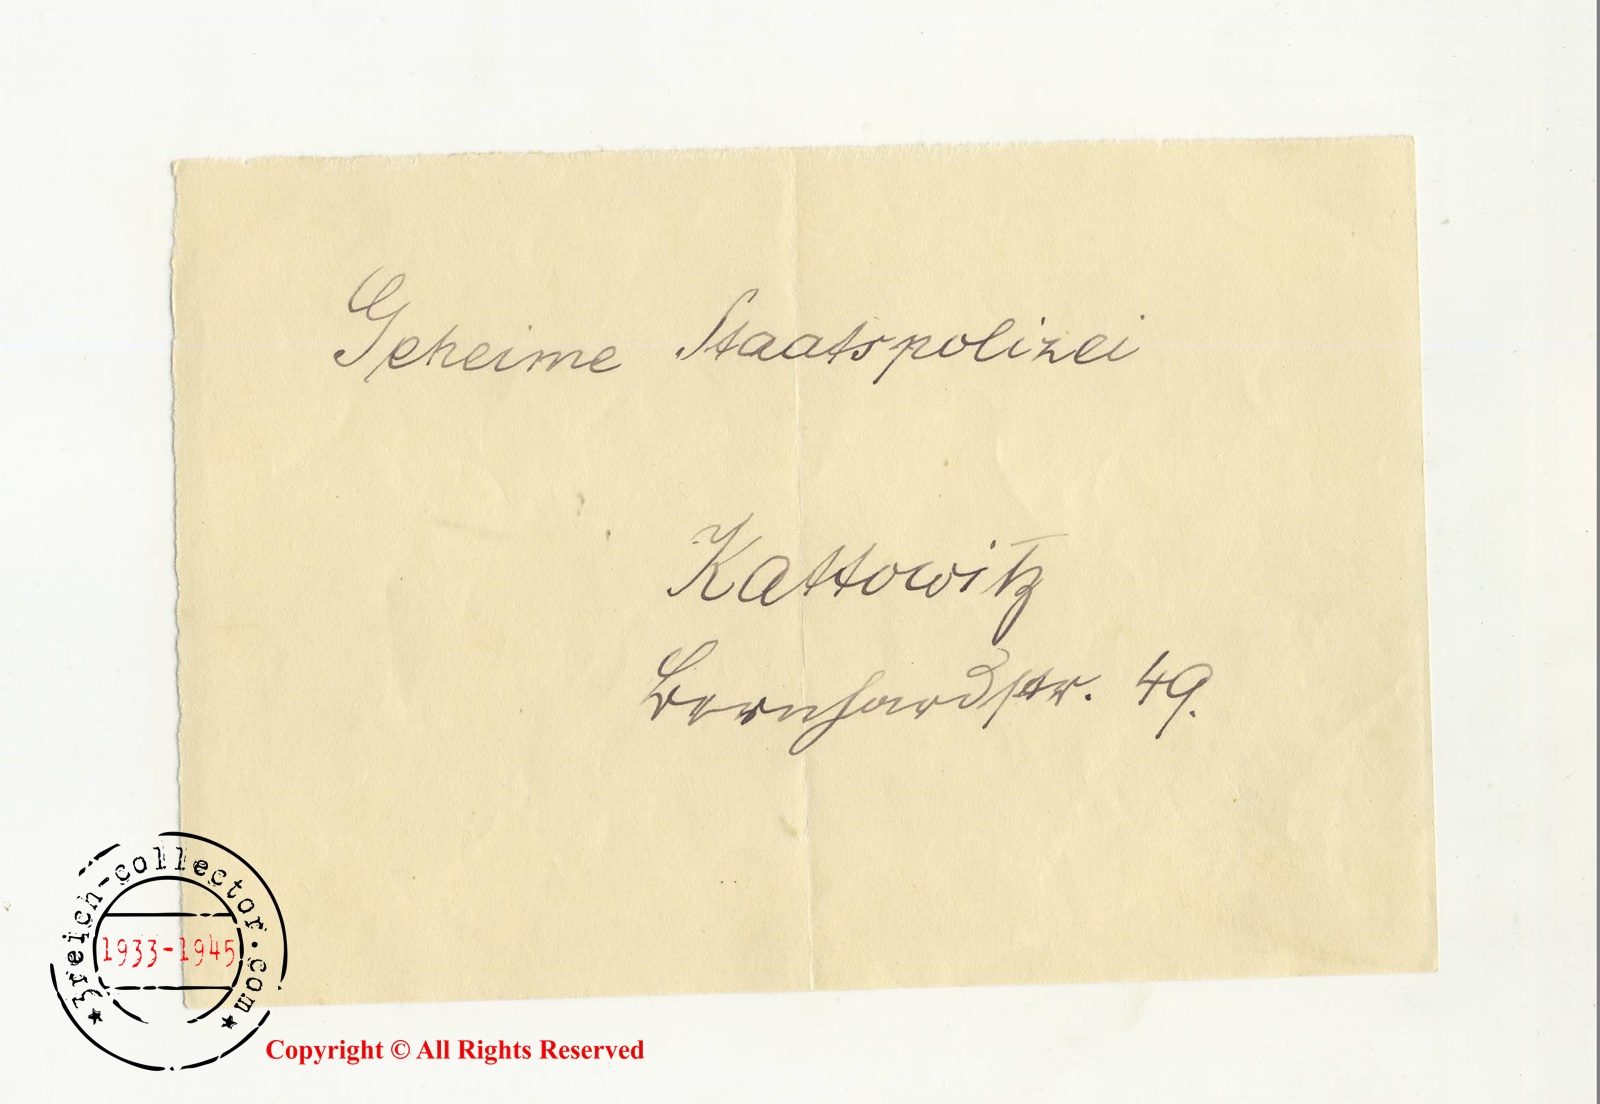 Geheime Staatspolizei
Kattowitz
Bernhardstr. 49.
3reich-collector.com
1933-1945
Copyright © All Rights Reserved